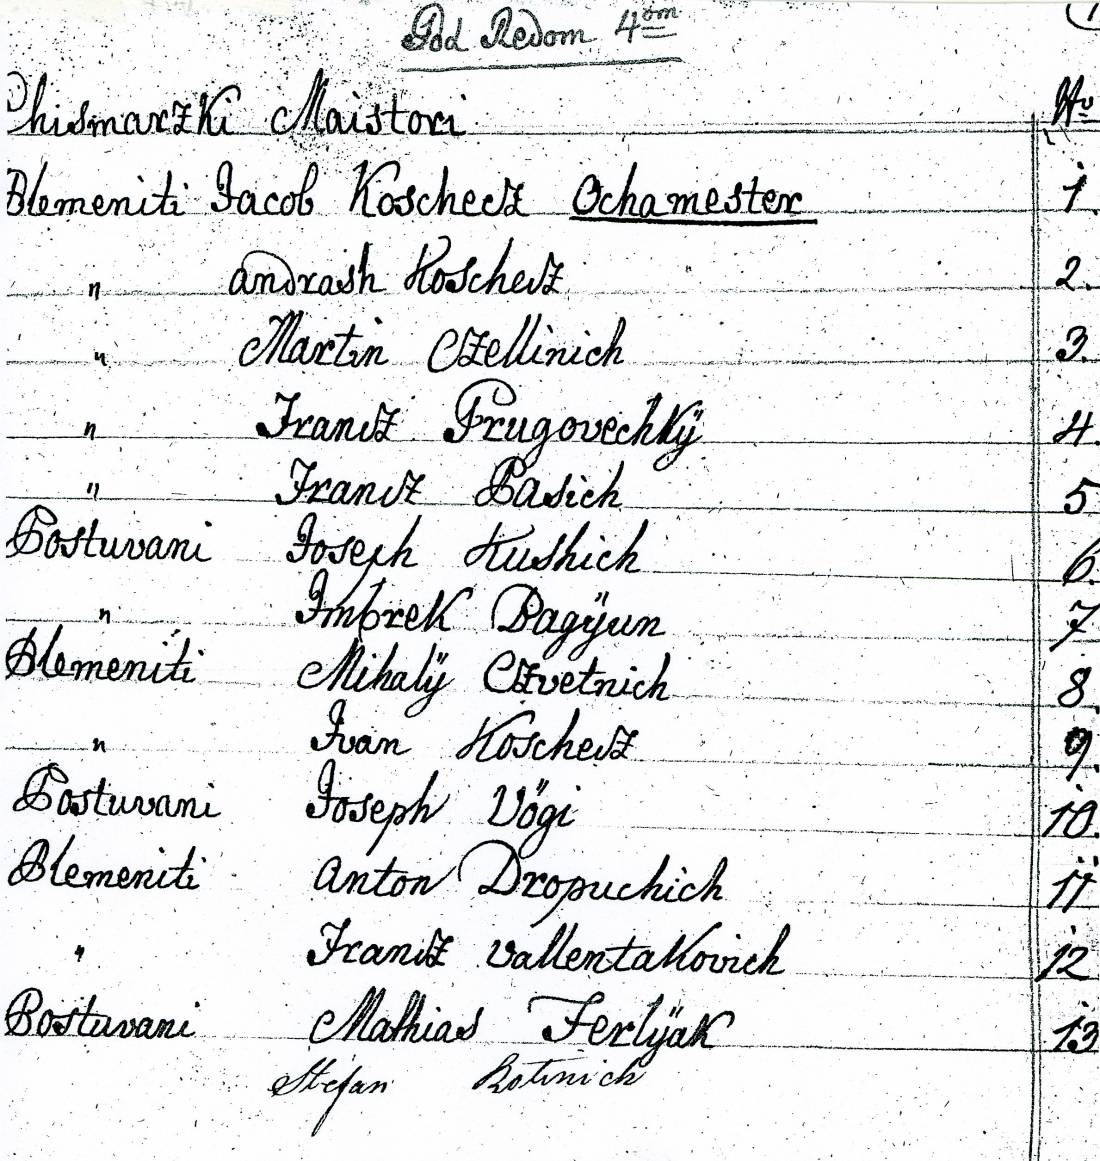 Pod Redom 4om
Chismarzki Maistori No
Plemeniti Jacob Koschecz Ochamester 1.
" Andrash Koschecz 2.
" Martin Czellinich 3.
" Francz Prugovechkÿ 4.
" Francz Pasich 5
Postuvani Joseph Kushich 6.
" Imbrek Pagÿun 7
Plemeniti Mihalÿ Czvetnich 8.
" Ivan Koschecz 9.
Postuvani Joseph Vögi 10.
Plemeniti Anton Dropuchich 11
" Francz Vallentakovich 12
Postuvani Mathias Ferlÿak 13
Stefan Rotinich